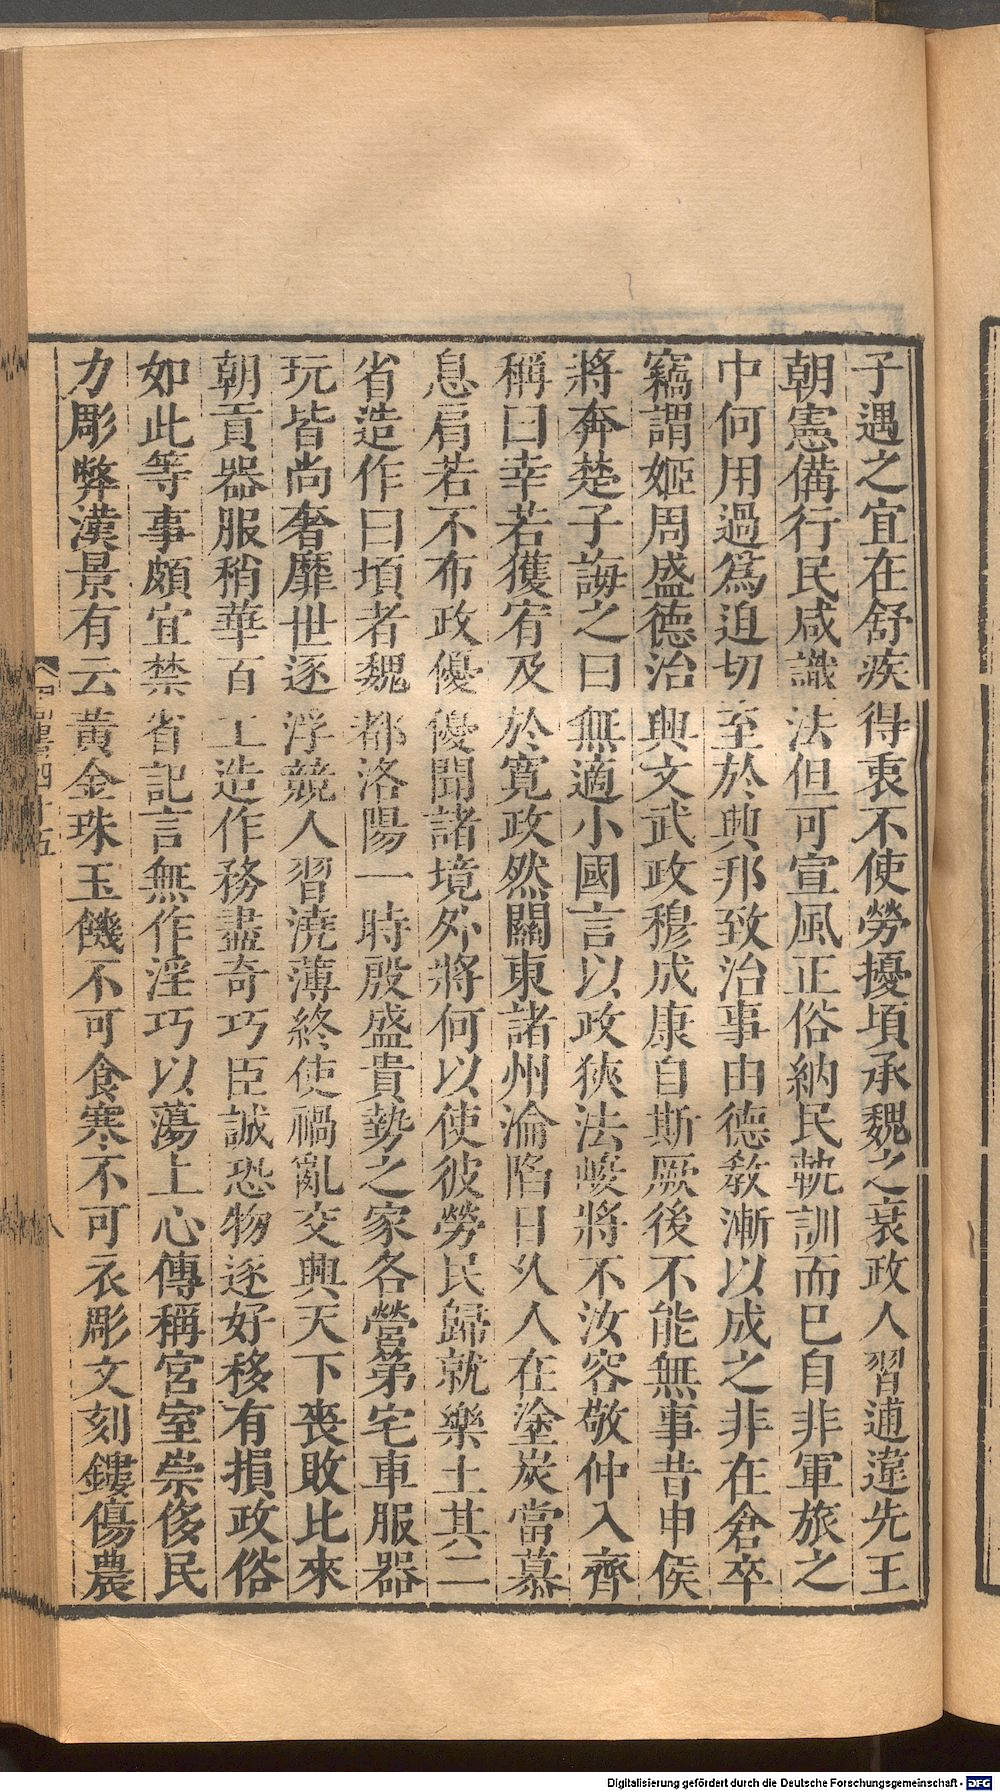 子遇之宜在舒疾得衷不使勞擾頃承魏之衰政人習逋違先王
朝憲備行民咸識法但可宣風正俗納民軌訓而已自非軍旅之
中何用過爲迫切至於典邦致治事由德敎漸以成之非在倉卒
竊謂姬周盛德治興文武政穆成康自斯厥後不能無事昔申侯
將奔楚子誨之曰無適小國言以政狹法峻將不汝容敬仲入齊
稱曰幸若獲宥及於寛政然關東諸州淪陷日久人在塗炭當慕
息肩若不布政優優聞諸境外將何以使彼勞民歸就樂土其二
省造作曰頃者魏都洛陽一時殷盛貴勢之家各營第宅車服器
玩皆尚奢靡世逐浮競人習澆薄終使禍亂交興天下喪敗比來
朝貢器服稍華百工造作務盡奇巧臣誠恐物逐好移有損政俗
如此等事頗宜禁省記言無作淫巧以蕩上心傳稱宮室崇侈民
力彫弊漢景有云黃金珠玉饑不可食寒不可衣彫文刻鏤傷農
八
Digitalisierung gefördert durch die Deutsche Forschungsgemeinschaft - DFG